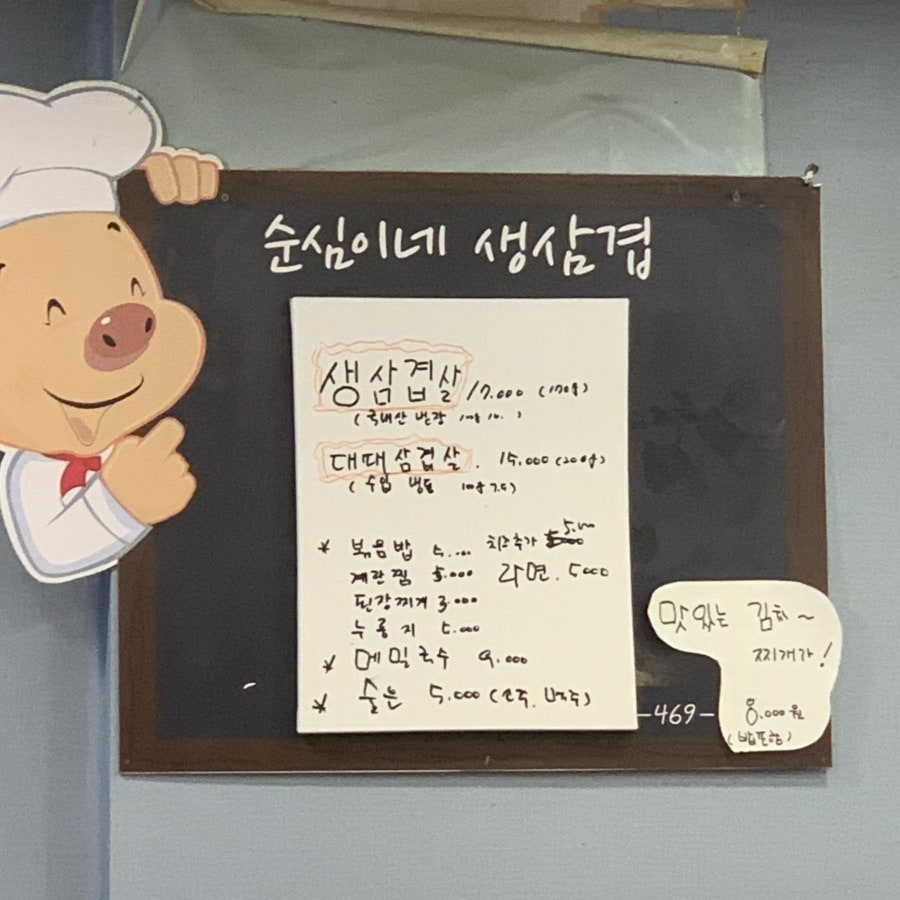 순심이네 생삼겹
생삼겹살 17.000 (170g)
(국내산 냉장
대패삼겹살. 15.000 (200g)
(수입 냉동 100g 7.5)
* 볶음밥 치즈추가
계란찜 5.000 라면. 5000
된장찌개 3.000
누룽지 5.000
* 메밀국수 9.000
* 술은 5.000 (소주. 맥주)
-469-
맛있는 김치~
찌개가!
8.000원
(밥포함)